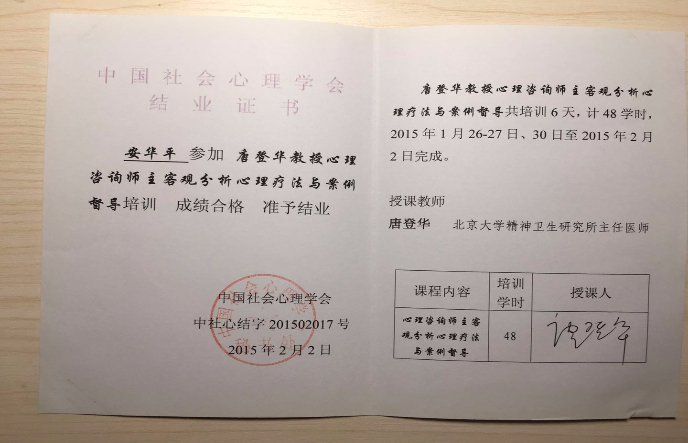 中国社会心理学会
结业证书
安华平 参加 唐登华教授心理
咨询师主客观分析心理疗法与案例
督导培训 成绩合格 准予结业
中国社会心理学会
中社心结字 201502017 号
2015 年 2 月 2 日
唐登华教授心理咨询师主客观分析心
理疗法与案例督导共培训 6 天，计 48 学时，
2015 年 1 月 26-27 日、30 日至 2015 年 2 月
2 日完成。
授课教师
唐登华 北京大学精神卫生研究所主任医师
课程内容 培训学时 授课人
心理咨询师主客
观分析心理疗法
与案例督导
48